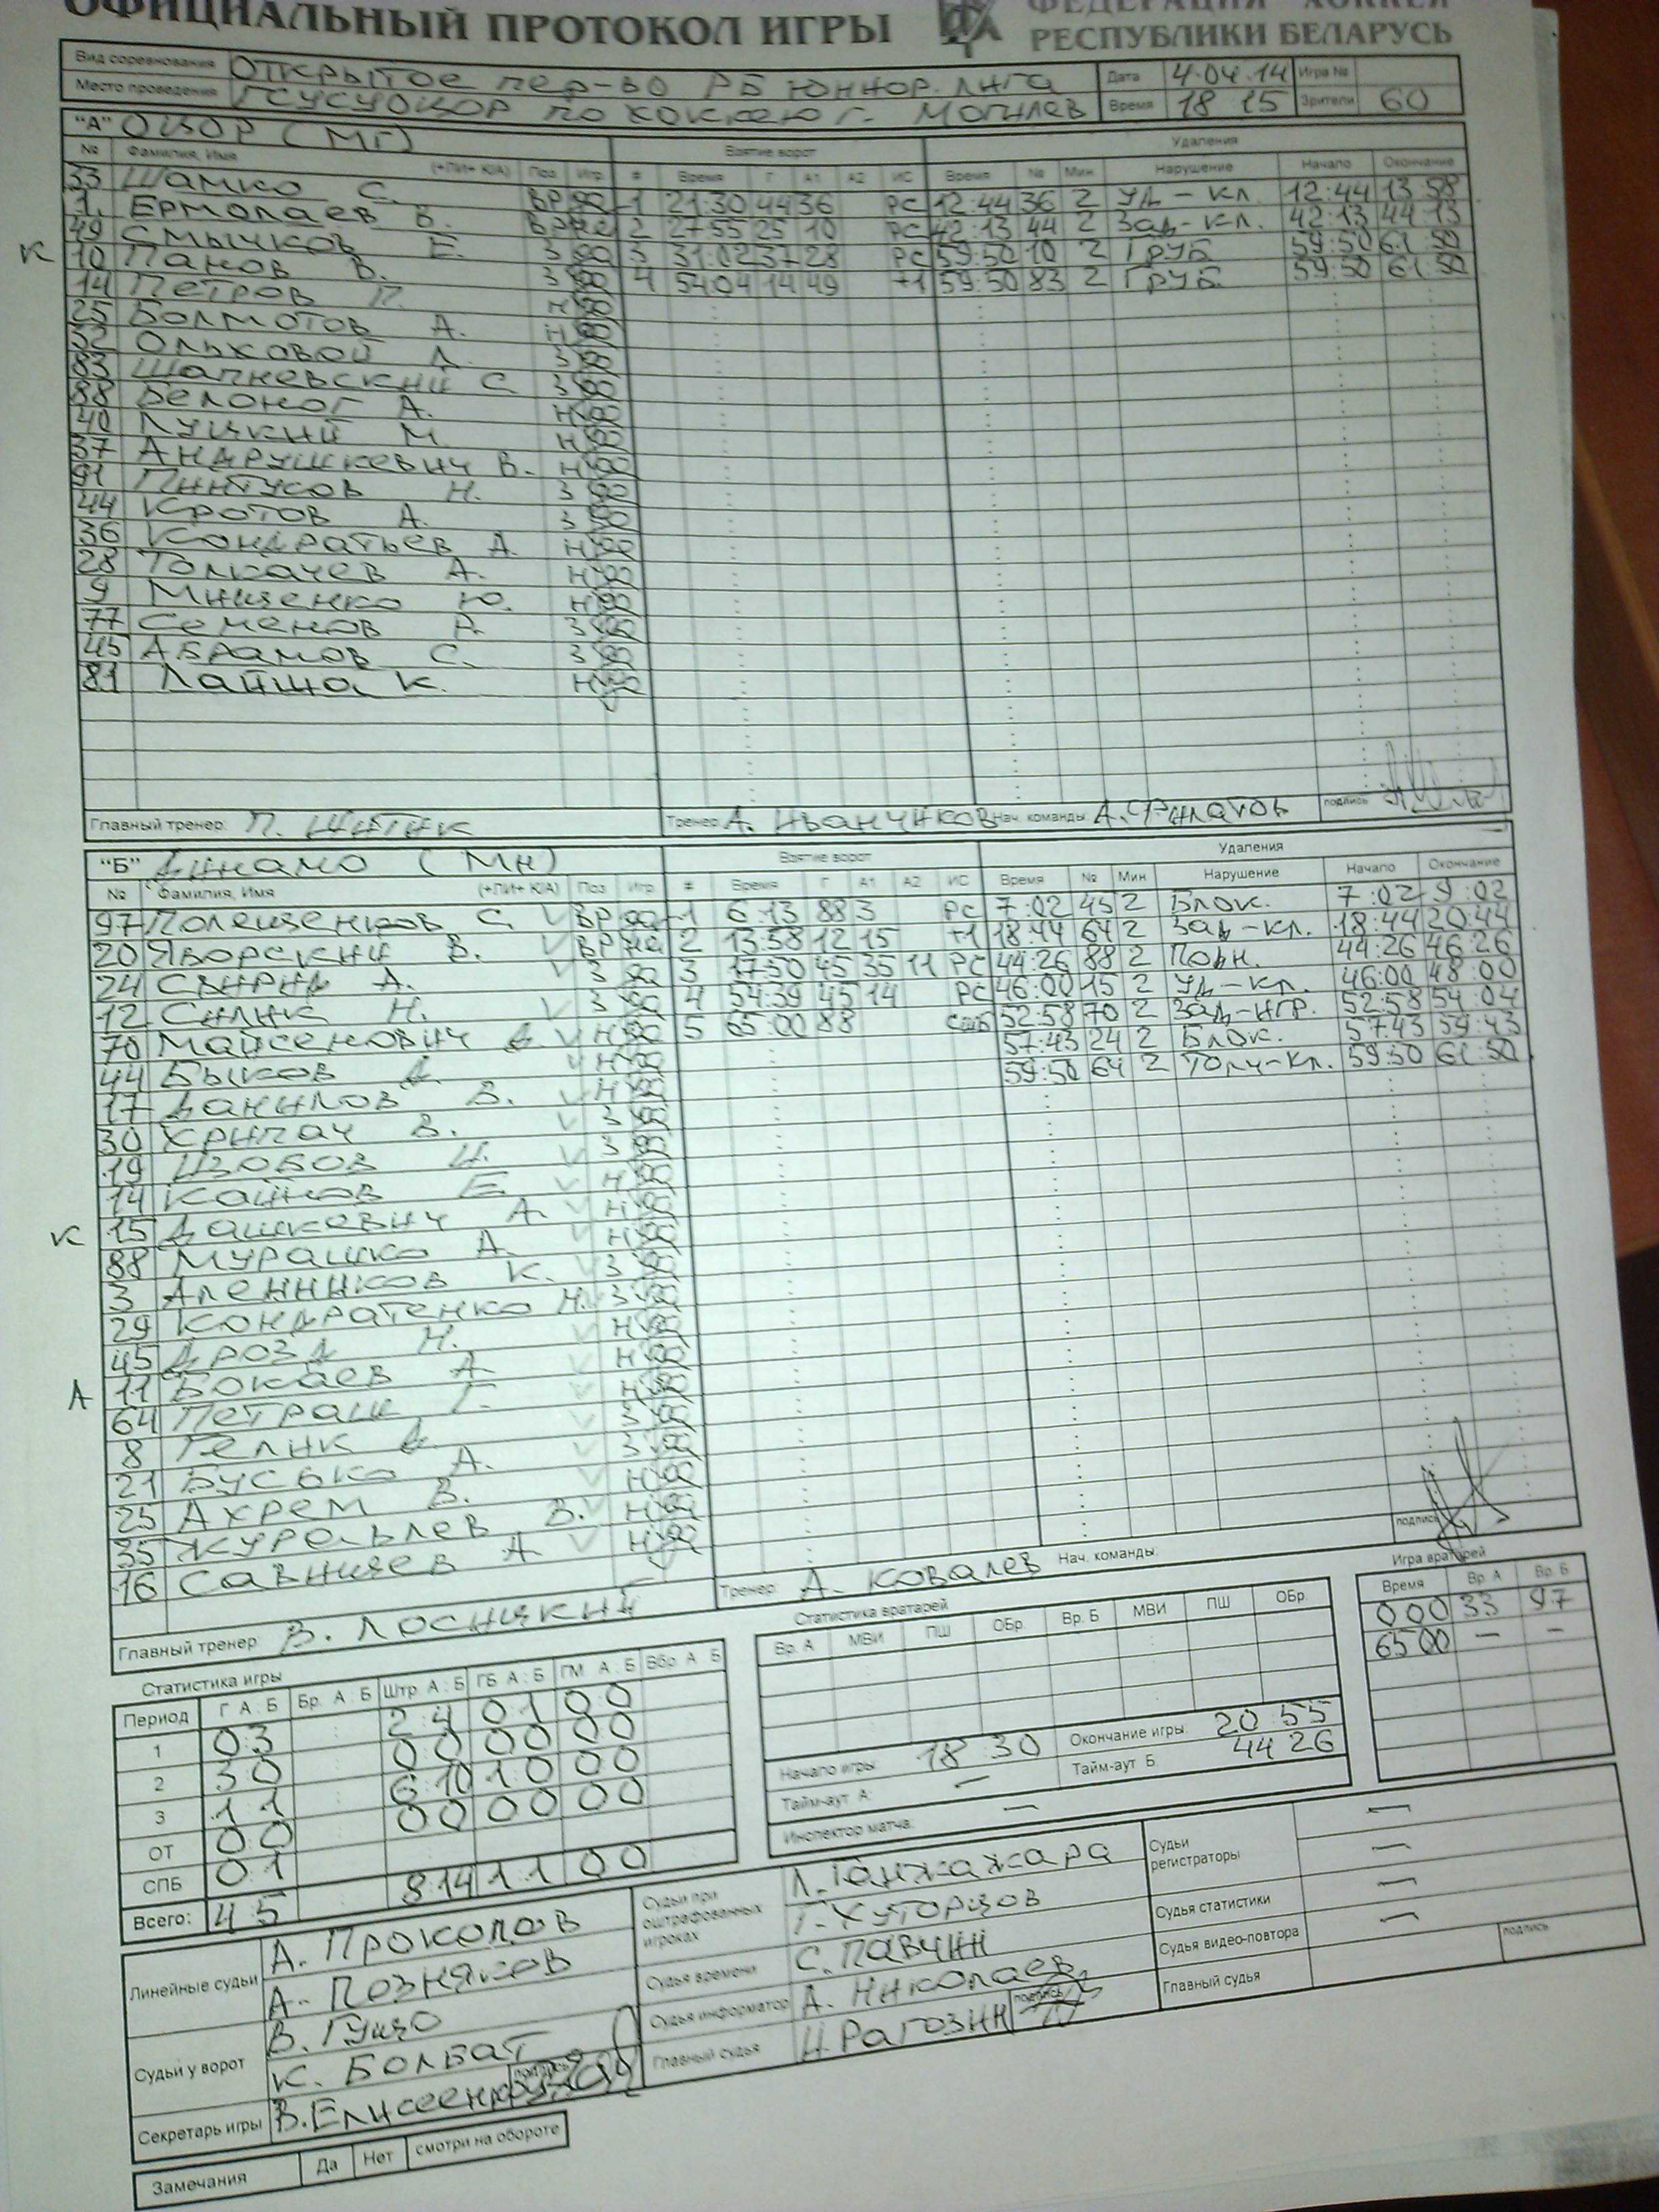 ОФИЦИАЛЬНЫЙ ПРОТОКОЛ ИГРЫ
ФЕДЕРАЦИЯ ХОККЕЯ
РЕСПУБЛИКИ БЕЛАРУСЬ
Вид соревнования Открытое пер-во РБ юниор. лига Дата 4.04.14 Игра №
Место проведения ГСУСУОЦОР по хоккею г. Могилев Время 18 15 Зрители 60
"А" ОЦОР (МГ) Взятие ворот Удаления
№ Фамилия, Имя (+ЛИ+ К/А) Поз Игр # Время Г А1 А2 ИС Время № Мин Нарушение Начало Окончание
33 Шамко С. ВР да 1 21:30 44 36 РС 12:44 36 2 УД-КЛ. 12:44 13:58
1 Ермолаев В. ВР не 2 27:55 25 10 РС 42:13 44 2 Зад-кл. 42:13 44:13
49 Смычков Е. З да 3 31:02 37 28 РС 59:50 10 2 ГРУБ 59:50 61:50
К 10 Панов В. З да 4 54:04 14 49 +1 59:50 83 2 ГРУБ. 59:50 61:50
14 Петров П. Н да
25 Болмотов А. Н да
52 Ольховой Л. З да
83 Шапневский С. З да
88 Белоног А. Н да
40 Луцкий М. Н да
37 Андрушкевич В. Н да
91 Пинтусов Н. З да
44 Кротов А. З да
36 Кондратьев А. Н да
28 Толкачев А. Н да
9 Мищенко Ю. Н да
77 Семенов Р. З да
45 Абрамов С. З да
81 Лайша К. Н да
Главный тренер: П. Шитик Тренер: А. Иванчиков Нач. команды: А. Филатов подпись
"Б" Динамо (Мн) Взятие ворот Удаления
№ Фамилия, Имя (+ЛИ+ К/А) Поз Игр # Время Г А1 А2 ИС Время № Мин Нарушение Начало Окончание
97 Полещенков С. ВР да 1 6:13 88 3 РС 7:02 45 2 Блок. 7:02 9:02
20 Яворский В. ВР не 2 13:58 12 15 +1 18:44 64 2 Зад-кл. 18:44 20:44
24 Свирид А. З да 3 17:50 45 35 11 РС 44:26 88 2 Подн. 44:26 46:26
12 Силик Н. З да 4 54:39 45 14 РС 46:00 15 2 УД-КЛ. 46:00 48:00
70 Майсенович Д. Н да 5 65:00 88 СШБ 52:58 70 2 Зад-игр. 52:58 54:04
44 Быков Д. Н да 57:43 24 2 Блок. 57:43 59:43
17 Данилов В. Н да 59:50 64 2 Толч-кл. 59:50 61:50
30 Хрипач В. З да
19 Изобов И. З да
14 Кайков Е. Н да
К 15 Дашкевич А. Н да
88 Мурашко А. Н да
3 Аленников К. З да
29 Кондратенко Н. З да
45 Дрозд Н. Н да
А 11 Бокаев А. Н да
64 Петраш Г. Н да
8 Гелик Д. З да
21 Бусько А. З да
25 Ахрем В. Н да
35 Журавлев В. Н да
16 Савицев А. Н да
подпись
Главный тренер: В. Лосицкий Тренер: А. Ковалев Нач. команды:
Статистика игры
Период Г А : Б Бр. А : Б Штр А : Б ГБ А : Б ГМ А : Б Вбр А Б
1 0 3 2:4 0 1 0 0
2 3 0 0 0 0 0 0 0
3 1 1 6 10 1 0 0 0
ОТ 0 0 0 0 0 0 0 0
СПБ 0 1
Всего: 4 5 8:14 1 1 0 0
Статистика вратарей
Вр. А МВИ ПШ ОБр. Вр. Б МВИ ПШ ОБр.
Начало игры: 18:30 Окончание игры: 20:55
Тайм-аут А: — Тайм-аут Б 44 26
Инспектор матча: —
Игра вратарей
Время Вр. А Вр. Б
0 00 33 97
65 00 — —
Линейные судьи А. Прокопов
А. Позняков
Судьи у ворот В. Гуцо
К. Болбат
Секретарь игры В. Елисеенко подпись
Судьи при оштрафованных игроках Л. Ганжажара
Г. Хуторцов
Судья времени С. Павчин
Судья информатор А. Николаев
Главный судья Н. Рагозин подпись
Судьи регистраторы —
—
Судья статистики —
Судья видео-повтора —
Главный судья подпись
Замечания Да Нет смотри на обороте